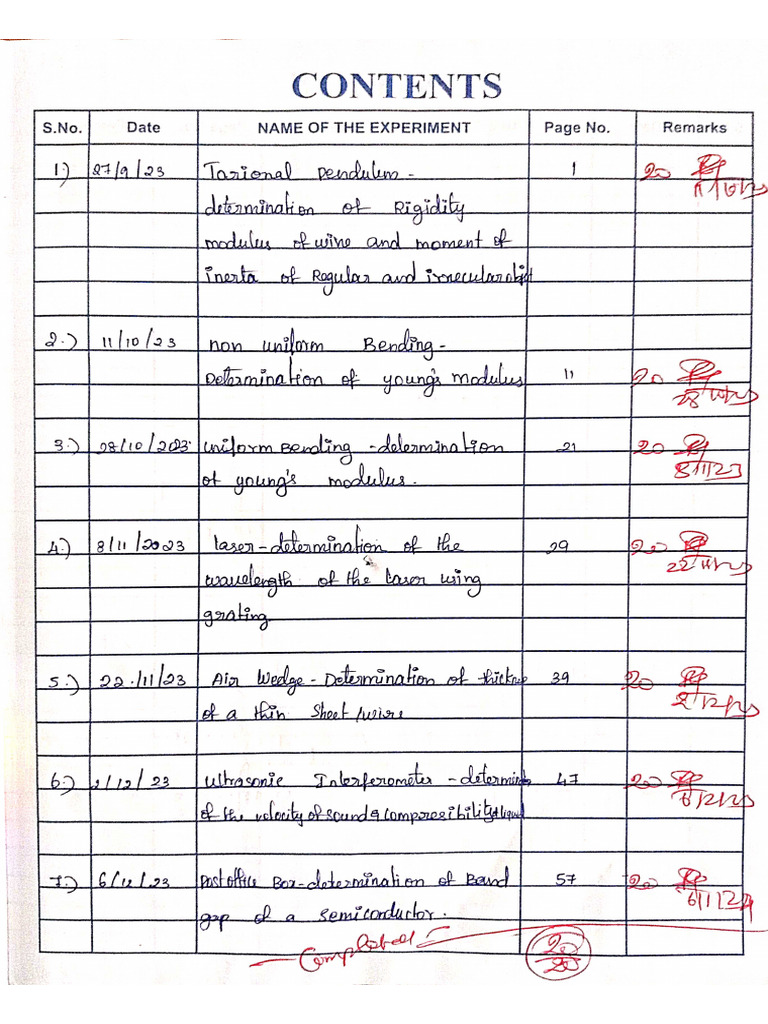 CONTENTS
S.No. Date NAME OF THE EXPERIMENT Page No. Remarks
1.) 27/9/23 Tarional pendulum- 1 20
determination of Rigidity
modulus of wire and moment of
inerta of Regular and irrecular
2.) 11/10/23 non uniform Bending-
Determination of young's modulus 11 20
3.) 28/10/2023 uniform Bending -determination 21 20
of young's modulus. 8/11/23
4.) 8/11/2023 Laser-determination of the 29 20
wavelength of the Laser using
grating.
5.) 22/11/23 Air Wedge-Determination of thickness 39 20
of a thin sheet/wire
6.) 2/12/23 Ultrasonic Interferometer -determin 47 20
of the velocity of sound & compresibility of liquid
7.) 6/12/23 Post office Box-determination of Band 57 20
gap of a semiconductor. 6/1/24
Completed 20/20